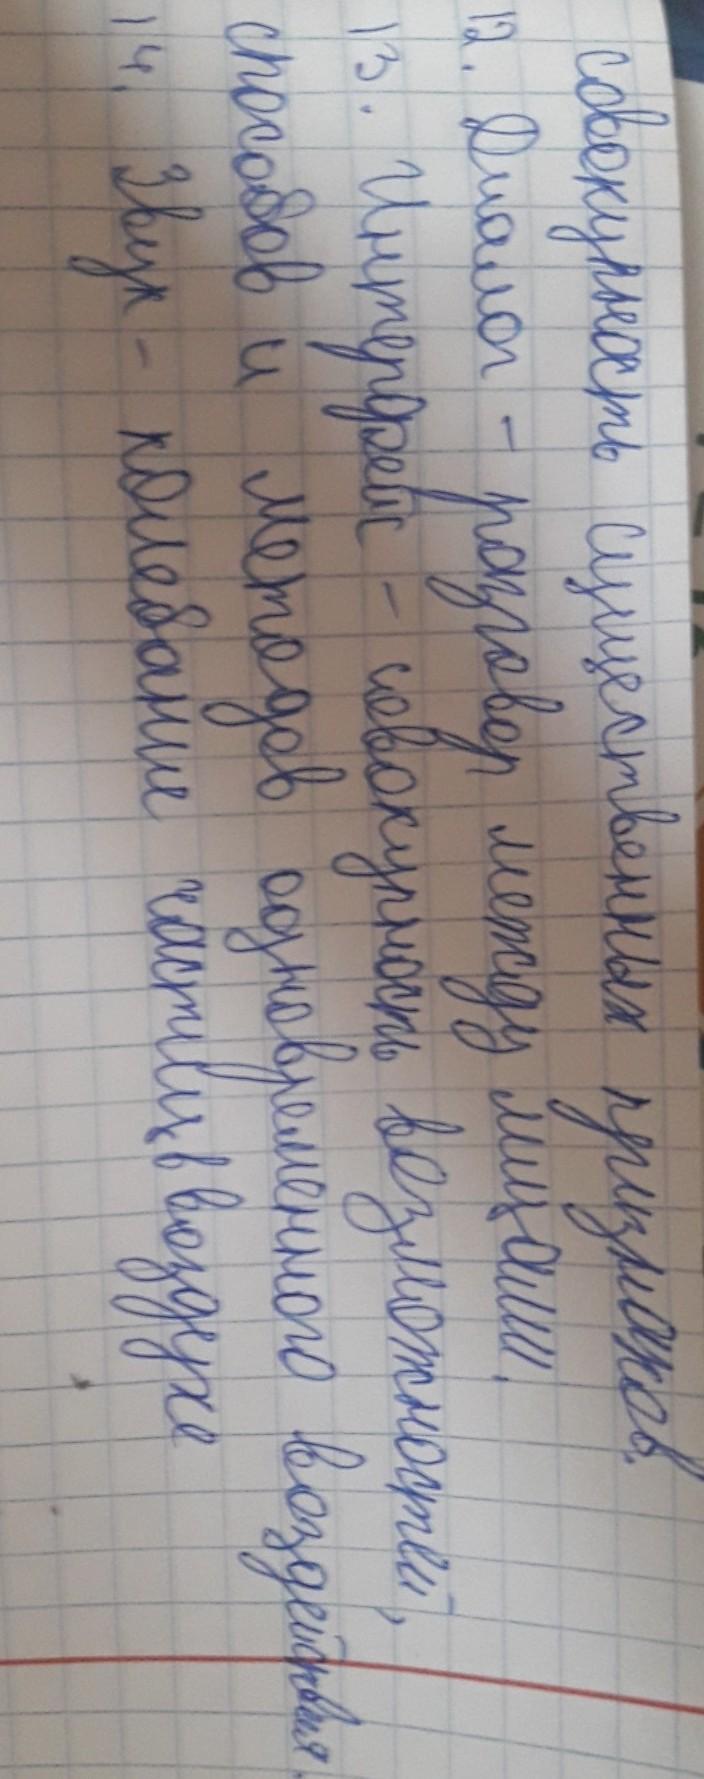 совокупность существенных признаков.
12. Диалог - разговор между лицами.
13. Интерфейс - совокупность возможностей,
способов и методов одновременного воздействия.
14. Звук - колебание частиц в воздухе